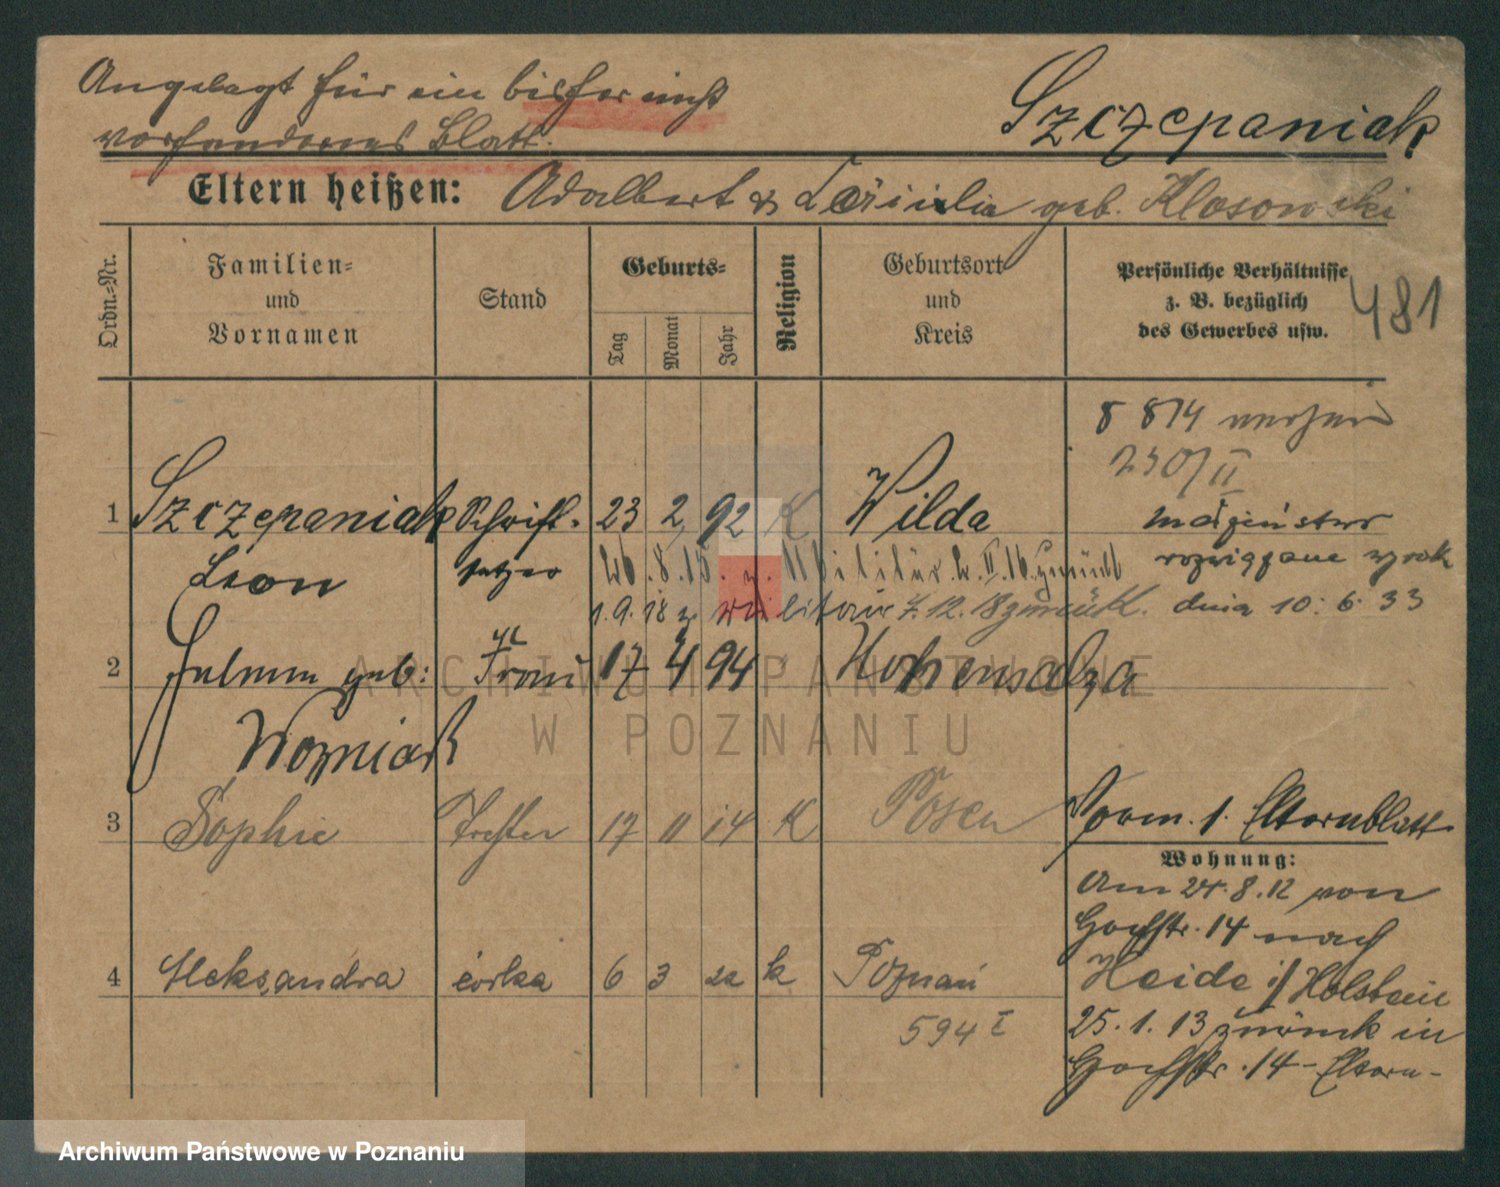 Angelegt für ein bisher nicht
vorhandenes Blatt.
Szczepaniak
Eltern heißen: Adalbert & Cäcilia geb. Klosowski
Ordn.-Nr.
Familien-
und
Vornamen
Stand
Geburts-
Tag
Monat
Jahr
Religion
Geburtsort
und
Kreis
Persönliche Verhältnisse
z. B. bezüglich
des Gewerbes usw.
481
8 814
230/II
1 Szczepaniak Schrift- 23 2 92 K Wilda
Leon setzer
małżeństwo
rozwiązane wyrok
26.8.15. z. Militär. 2. II. 16. zurück
1.9.18 z Militair 7.12.18 zurück. dnia 10.6.33
2 geb: Frau 17 4 94 Hohensalza
Wozniak
3 Sophie Tochter 17 11 14 K Posen
Vorm. 1. Elternblatt
Wohnung:
Am 24.8.12 von
Hochstr. 14 nach
Heide i/Holstein
25.1.13 zurück in
Hochstr. 14 - Eltern-
4 Aleksandra córka 6 3 22 k Poznań
594 I
ARCHIWUM PAŃSTWOWE
W POZNANIU
Archiwum Państwowe w Poznaniu